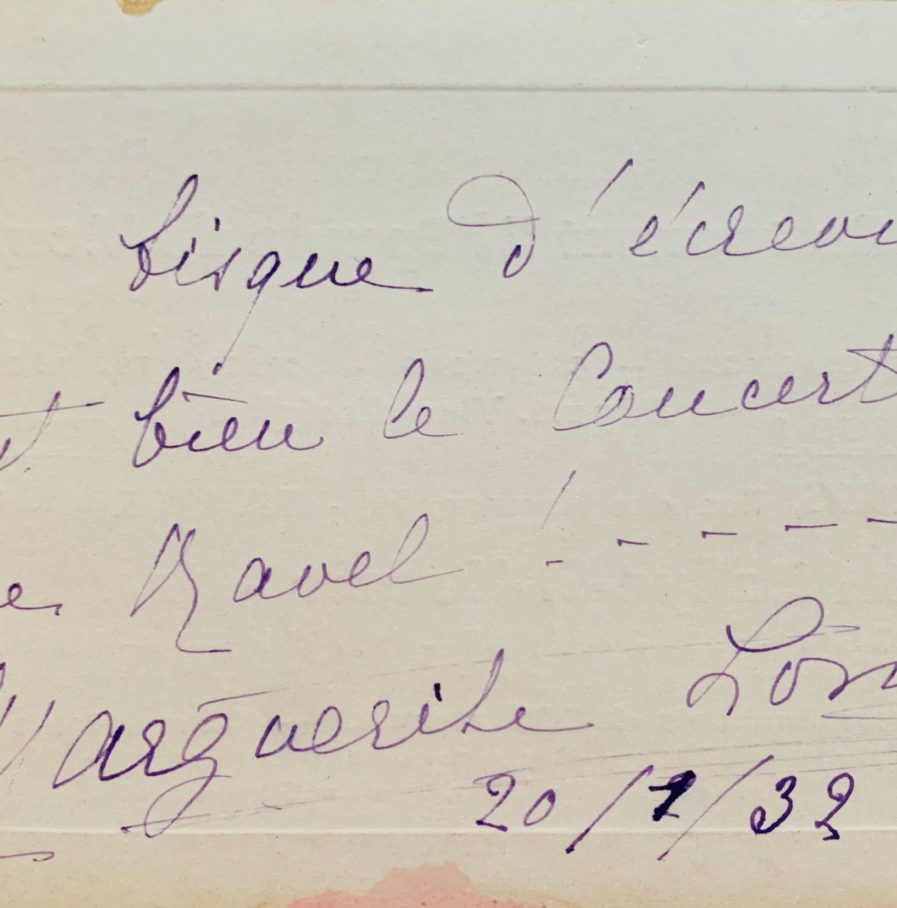 bisque d'écrevi
t bien le Concert
e Ravel ! - - - -
Marguerite Lon
20/1/32